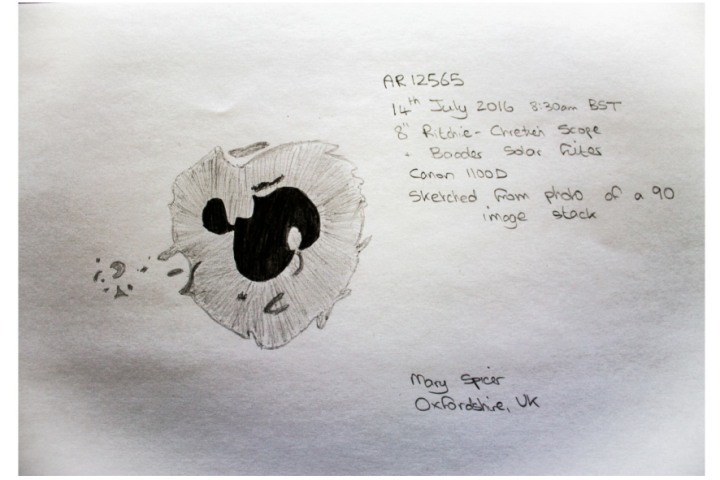 AR 12565
14th July 2016 8:30am BST
8" Ritchie-Chretien Scope
+ Baader Solar Filter
Canon 1100D
Sketched from photo of a 90
image stack
Mary Spicer
Oxfordshire, UK